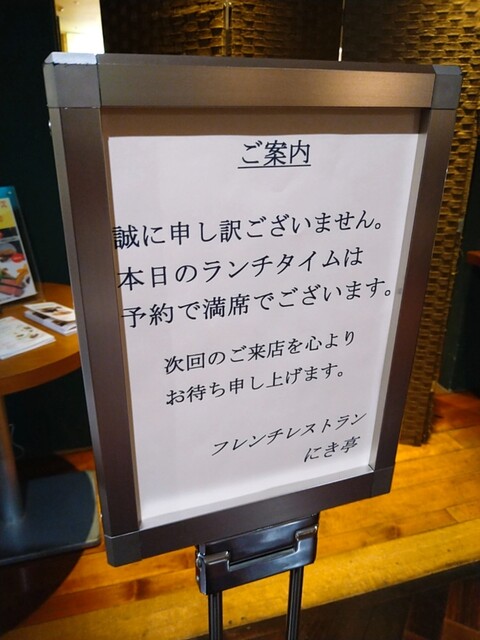 ご案内
誠に申し訳ございません。
本日のランチタイムは
予約で満席でございます。
次回のご来店を心より
お待ち申し上げます。
フレンチレストラン
にき亭